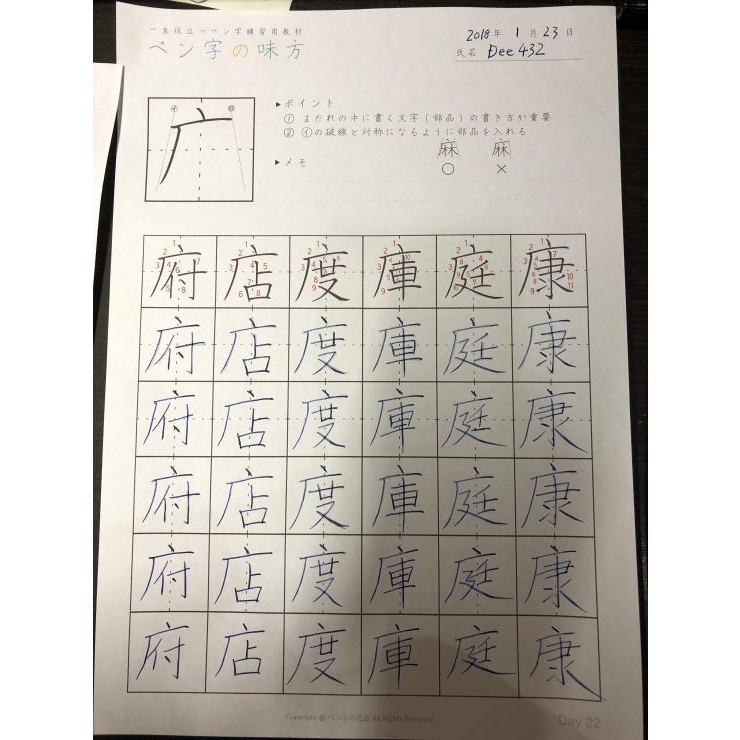 一生役立つペン字練習用教材
ペン字の味方
2018年 1月23日
氏名 Dee432
イ ロ
广
▶ポイント
① まだれの中に書く文字(部品)の書き方が重要
② ㋑の破線と対称になるように部品を入れる
▶メモ
麻 麻
○ ×
府 店 度 庫 庭 康
府 店 度 庫 庭 康
府 店 度 庫 庭 康
府 店 度 庫 庭 康
府 店 度 庫 庭 康
府 店 度 庫 庭 康
Copyright © ペン字の花道 All Rights Reserved.
Day 22